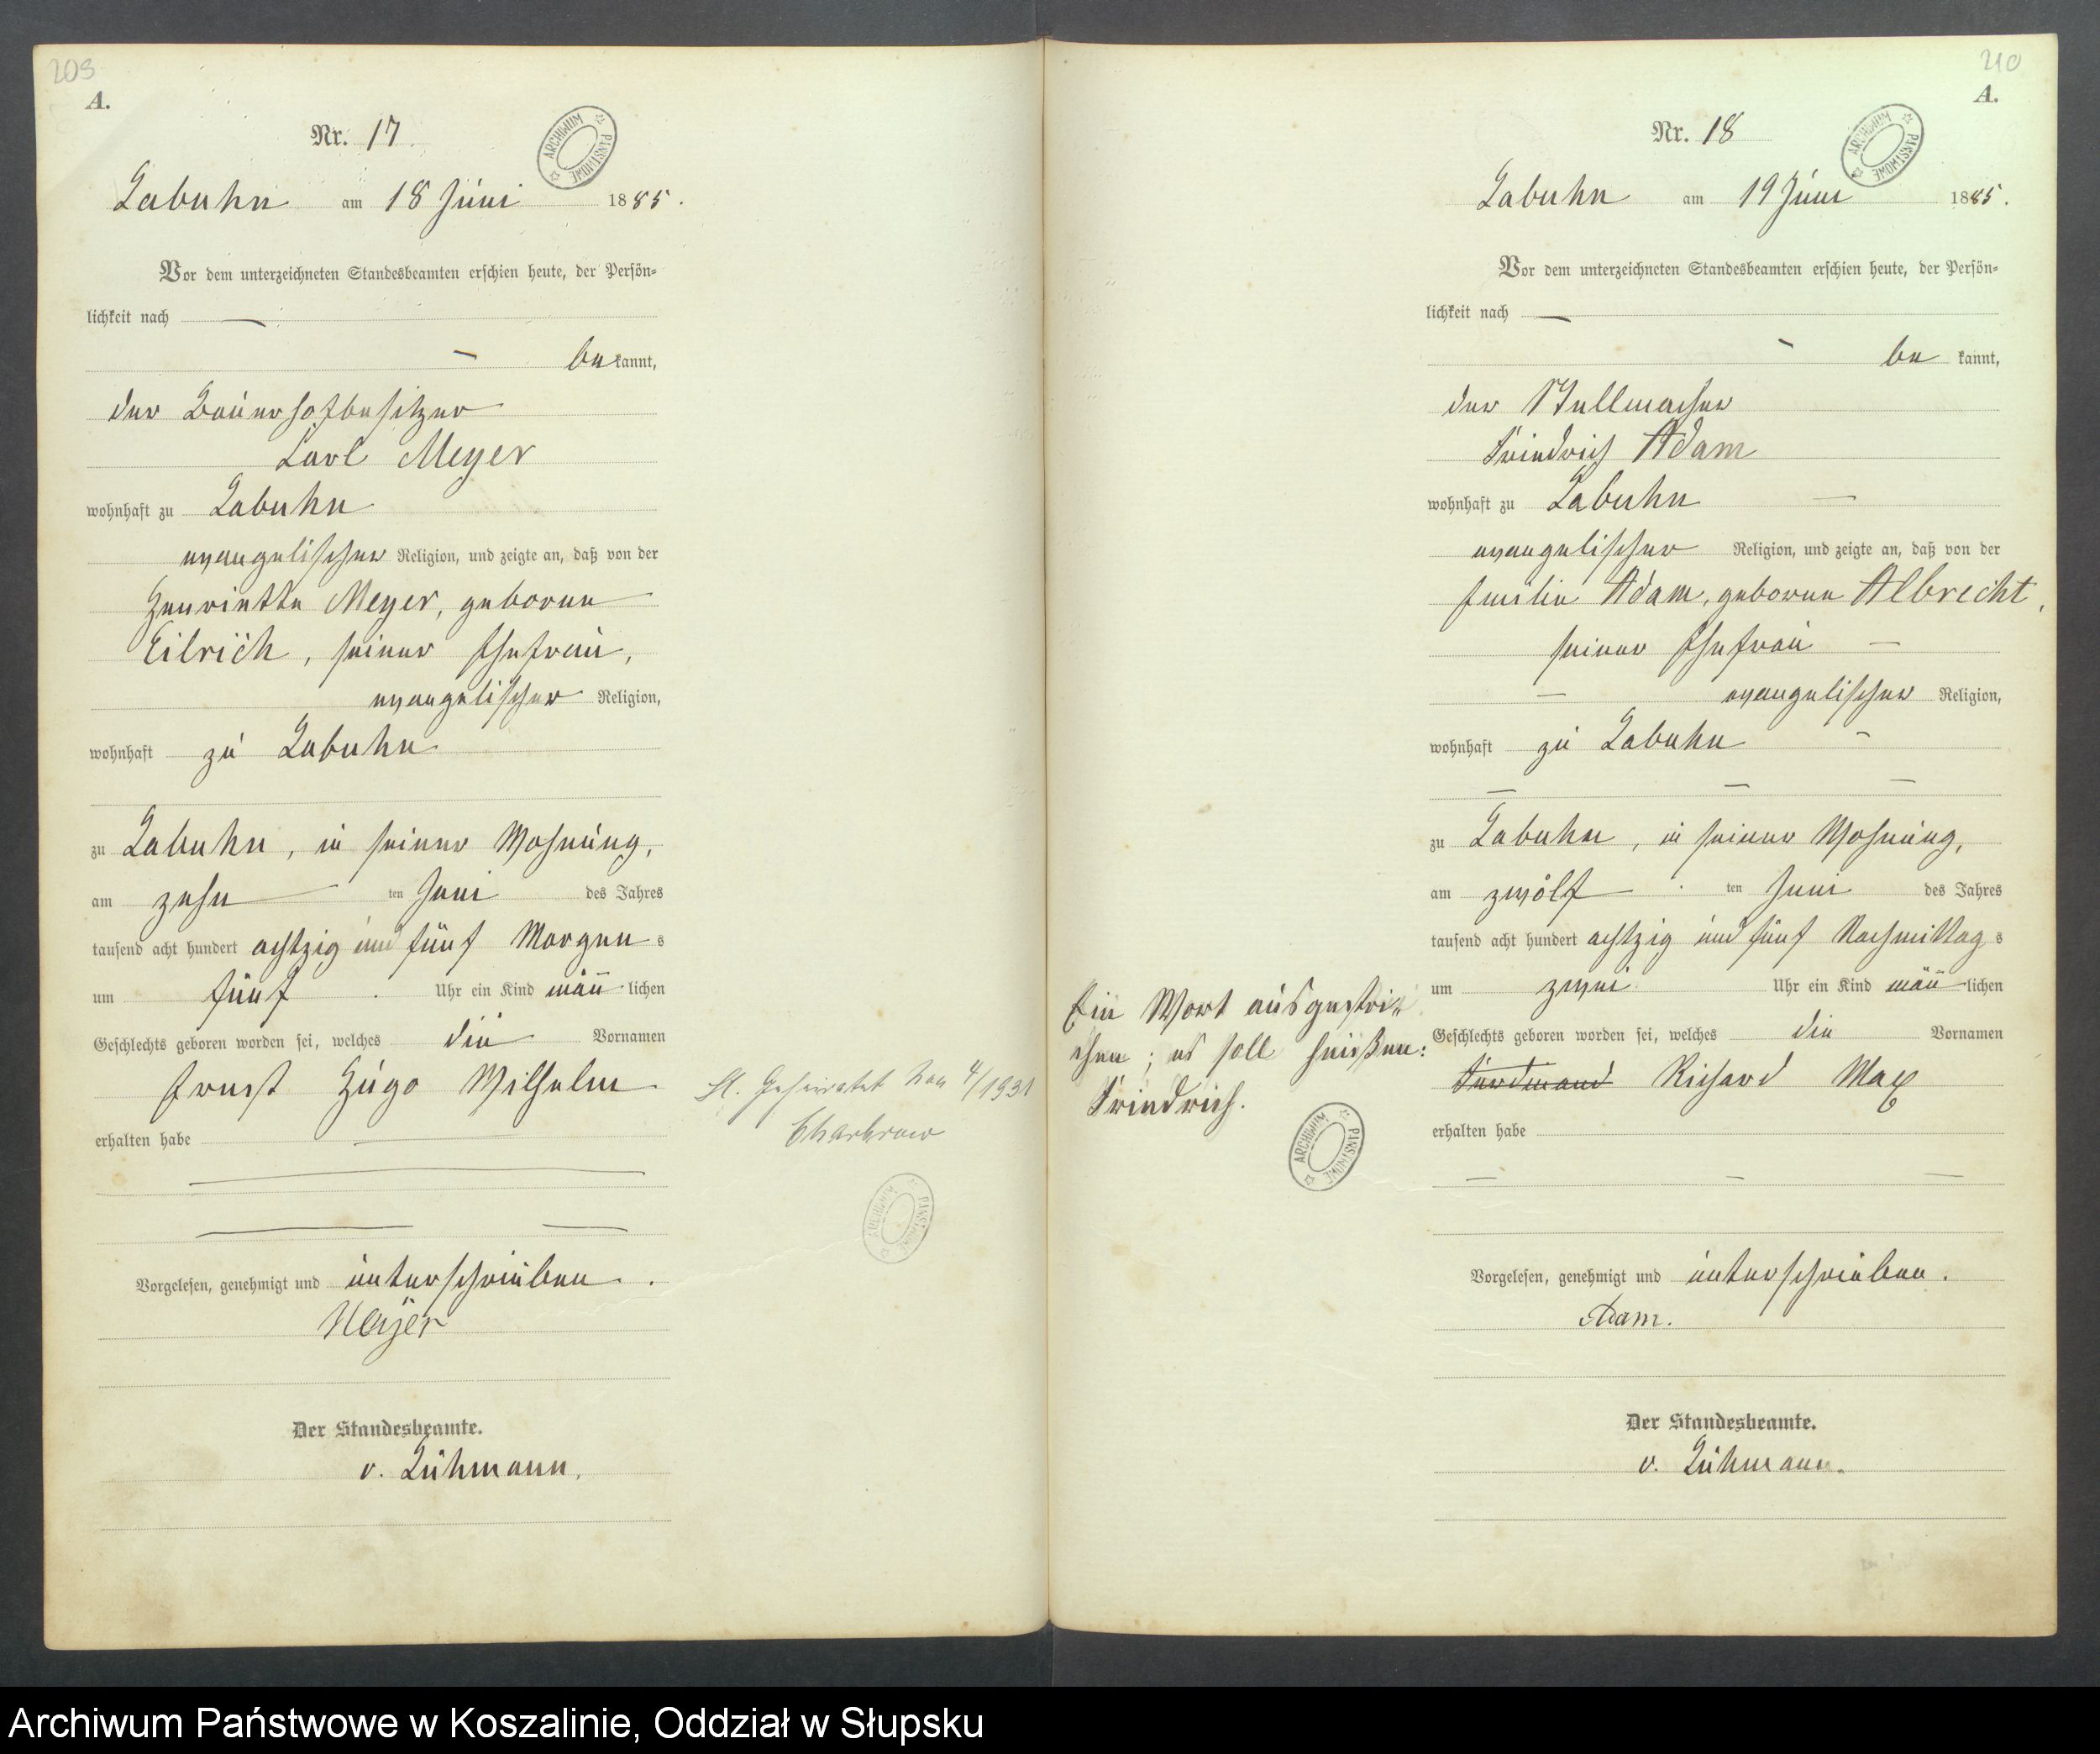 209
A.
Nr. 17.
ARCHIWUM PAŃSTWOWE
Labuhn am 18 Juni 1885.
Vor dem unterzeichneten Standesbeamten erschien heute, der Persön=
lichkeit nach —
— bekannt,
der Bauerhofbesitzer
Carl Meyer
wohnhaft zu Labuhn
evangelischer Religion, und zeigte an, daß von der
Henriette Meyer, geborene
Eilrich, seiner Ehefrau,
evangelischer Religion,
wohnhaft zu Labuhn
zu Labuhn, in seiner Wohnung,
am zehn ten Juni des Jahres
tausend acht hundert achtzig und fünf Morgens
um fünf Uhr ein Kind männlichen
Geschlechts geboren worden sei, welches die Vornamen
Ernst Hugo Wilhelm
erhalten habe —
Geheiratet 4/1931
Charbrow
ARCHIWUM PAŃSTWOWE
Vorgelesen, genehmigt und unterschrieben.
Meÿer
Der Standesbeamte.
v. Lühmann.
210
A.
Nr. 18
ARCHIWUM PAŃSTWOWE
Labuhn am 19 Juni 1885.
Vor dem unterzeichneten Standesbeamten erschien heute, der Persön=
lichkeit nach —
— bekannt,
der Stellmacher
Friedrich Adam
wohnhaft zu Labuhn —
evangelischer Religion, und zeigte an, daß von der
Emilie Adam, geborene Albrecht,
seiner Ehefrau —
— evangelischer Religion,
wohnhaft zu Labuhn —
— — —
zu Labuhn, in seiner Wohnung,
am zwölf ten Juni des Jahres
tausend acht hundert achtzig und fünf Nachmittags
um zwei Uhr ein Kind männlichen
Geschlechts geboren worden sei, welches die Vornamen
Ferdinand Richard Max
erhalten habe
— — —
Ein Wort ausgestri=
chen; es soll heißen:
Friedrich.
ARCHIWUM PAŃSTWOWE
Vorgelesen, genehmigt und unterschrieben.
Adam.
Der Standesbeamte.
v. Lühmann.
Archiwum Państwowe w Koszalinie, Oddział w Słupsku